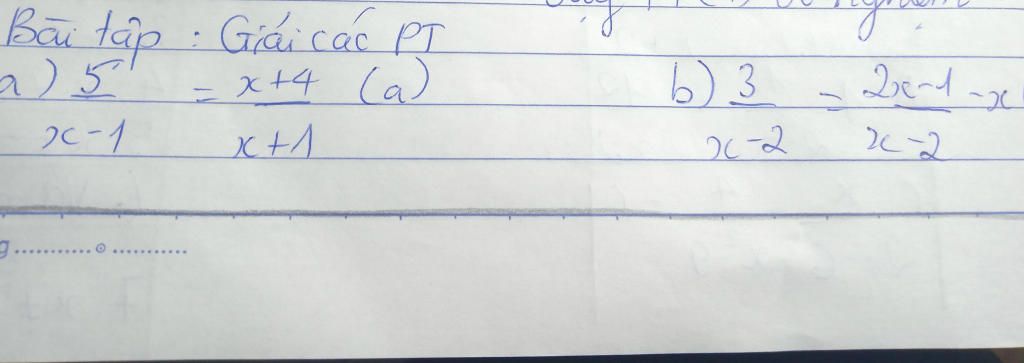 Bài tập : Giải các PT
a) 5/x-1 = x+4/x+1 (a) b) 3/x-2 = 2x-1/x-2 -x